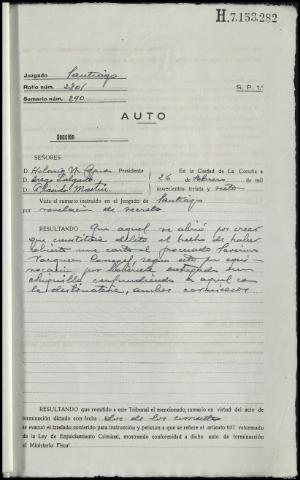 H.7.153.282
Juzgado Santiago
Rollo núm. 2301 S. P. 1ª
Sumario núm. 290
AUTO
Sección
SEÑORES:
D. Hilario N. Presidente En la Ciudad de La Coruña a
D. Diego Salgado 26 febrero de mil
D. Plácido Martín novecientos treinta y siete
Visto el sumario instruido en el Juzgado de Santiago
por revelación de secreto
RESULTANDO: Que aquel se abrió por creer
que constituía delito el hecho de haber
abierto una carta el procesado
Vazquez según esto por equi-
vocación por habérsela entregado un
chiquillo confundiendo a aquel con
la destinataria, ambos
RESULTANDO que remitido a este Tribunal el mencionado sumario en virtud del acto de
terminación dictado con fecha dos de los corrientes
se evacuó el traslado conferido para instrucción y petición a que se refiere el artículo 627 reformado
de la Ley de Enjuiciamiento Criminal, mostrando conformidad a dicho auto de terminación
el Ministerio Fiscal.